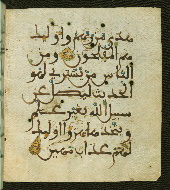 هدى من ربهم واولئك
هم المفلحون ومن
الناس من يشترى لهو
الحديث ليضل عن
سبيل الله بغير علم
ويتخذها هزوا اولئك
لهم عذاب مهين